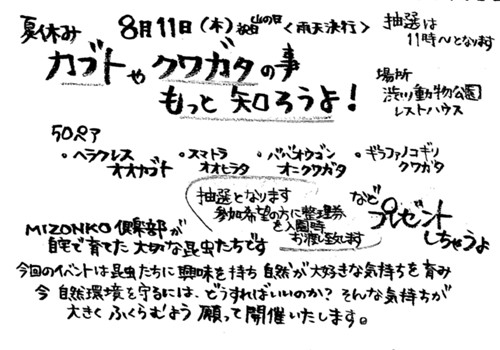 夏休み 8月11日(木)祝日 山の日 <雨天決行>
抽選は
11時〜となります
カブトやクワガタの事
もっと知ろうよ!
場所
渋川動物公園
レストハウス
50ペア
・ヘラクレス
オオカブト
・スマトラ
オオヒラタ
・ババオウゴン
オニクワガタ
・ギラファノコギリ
クワガタ
など
プレゼント
しちゃうよ
抽選となります
参加希望の方に整理券
を入園時
お渡し致します
MIZONKO倶楽部が
自宅で育てた大切な昆虫たちです
今回のイベントは昆虫たちに興味を持ち自然が大好きな気持ちを育み
今自然環境を守るには、どうすればいいのか?そんな気持ちが
大きくふくらむよう願って開催いたします。